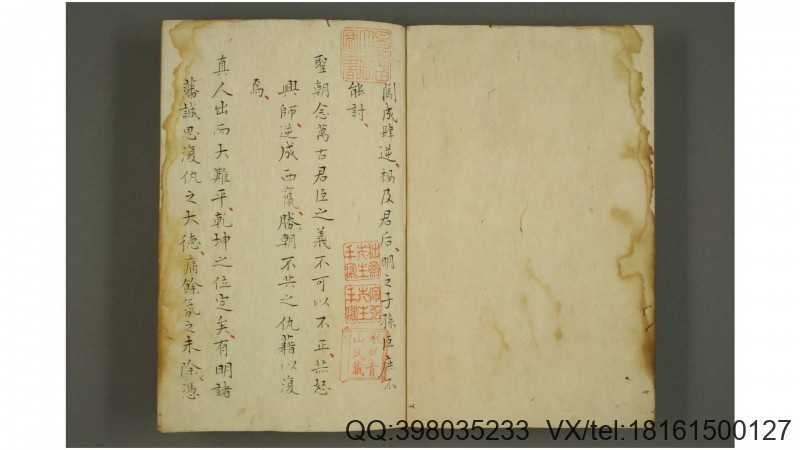 闖成肆逆禍及君后明之子孫臣庶不
能討
聖朝念萬古君臣之義不可以不正赫怒
興師逆成西竄勝朝不共之仇藉以復
焉
真人出而大難平乾坤之位定矣有明諸
藩誠思復仇之大德痛餘氛之未除憑
QQ:398035233 VX/tel:18161500127